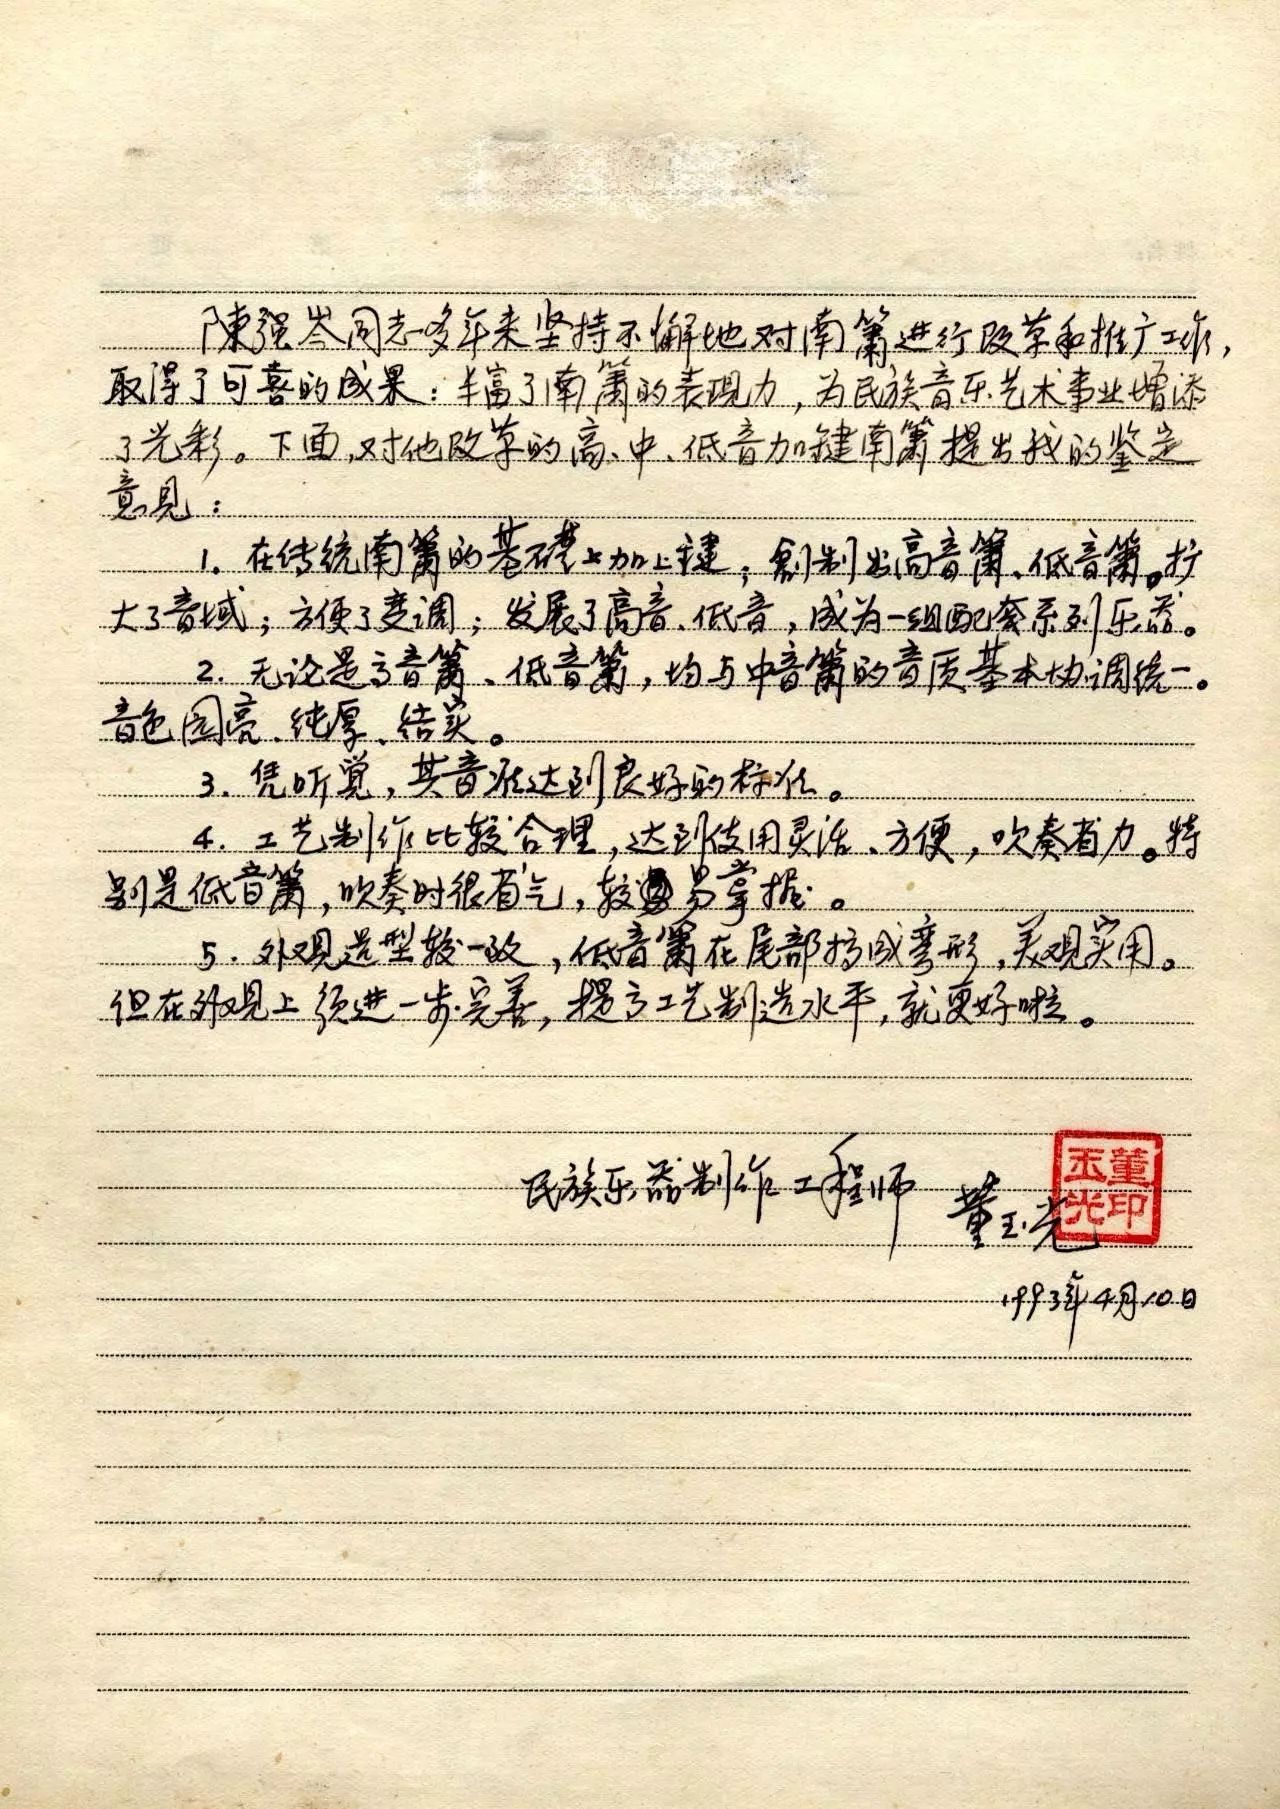 陳强岑同志多年来坚持不懈地对南箫进行改革和推广工作,
取得了可喜的成果：丰富了南箫的表现力，为民族音乐艺术事业增添
了光彩。下面，对他改革的高、中、低音加键南箫提出我的鉴定
意见：
1. 在传统南箫的基礎上加上键；創制出高音箫、低音箫。扩
大了音域；方便了变调；发展了高音、低音，成为一组配套系列乐器。
2. 无论是高音箫、低音箫，均与中音箫的音质基本协调统一。
音色圆亮、纯厚、结实。
3. 凭听觉，其音准达到良好的标准。
4. 工艺制作比较合理，达到使用灵活、方便，吹奏省力。特
别是低音箫，吹奏时很省气，较易掌握。
5. 外观造型较一致，低音箫在尾部搞成弯形，美观实用。
但在外观上须进一步完善，提高工艺制造水平，就更好啦。
民族乐器制作工程师
董玉光
董玉光印
1993年4月10日